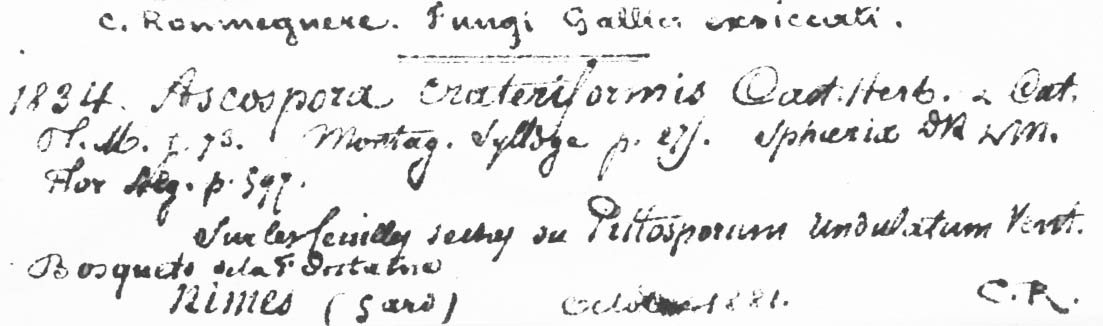 C. Roumeguere. Fungi Gallici exsiccati.
1834. Ascospora crateriformis Cast. Herb. & Cat.
Pl. M. p. 73. Montag. Sylloge p. Sphaeria DR & M.
Flor Alg. p. 597.
Sur les feuilles seches du Pittosporum undulatum Vent.
Bosquets de la Fontaine
Nimes (Gard) Octobre 1881. C.R.